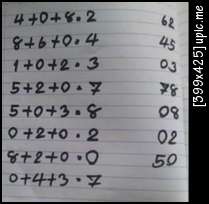 4+0+8.2 62
8+6+0.4 45
1+0+2.3 03
5+2+0.7 78
5+0+3.8 08
0+2+0.2 02
8+2+0.0 50
0+4+3.7
[399x425] upic.me